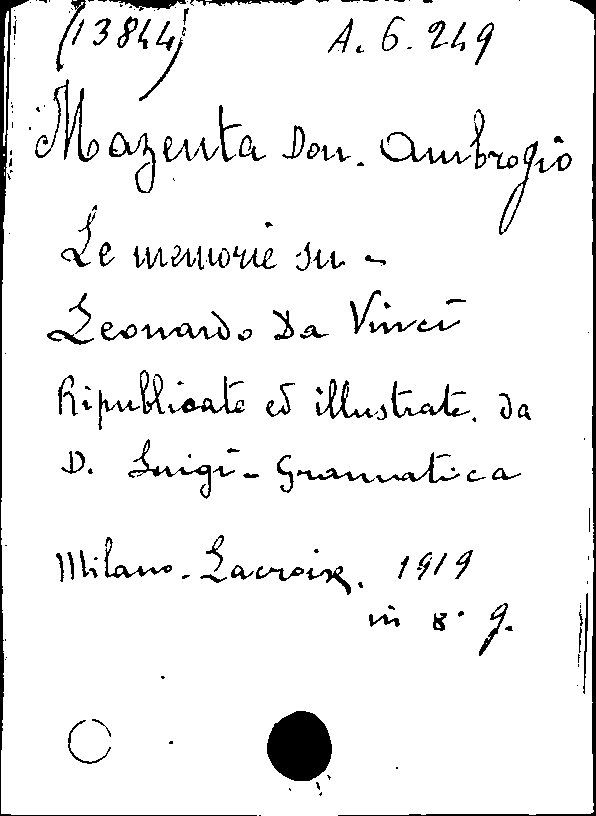 (13844) A. 6. 249
Mazenta Don. Ambrogio
Le memorie su -
Leonardo Da Vinci
Ripubblicate ed illustrate. da
D. Luigi - Gramatica
Milano - Lacroix. 1919
in 8° g.